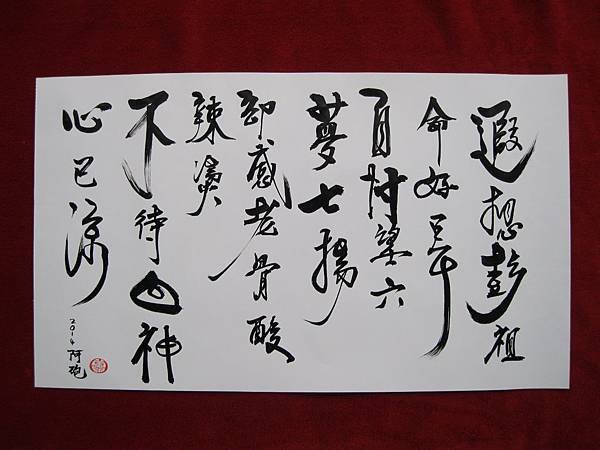 遐想彭祖
命好長
自忖望六
夢七揚
卻感老骨酸
辣燙
不待回神
心已涼
2014 阿砲